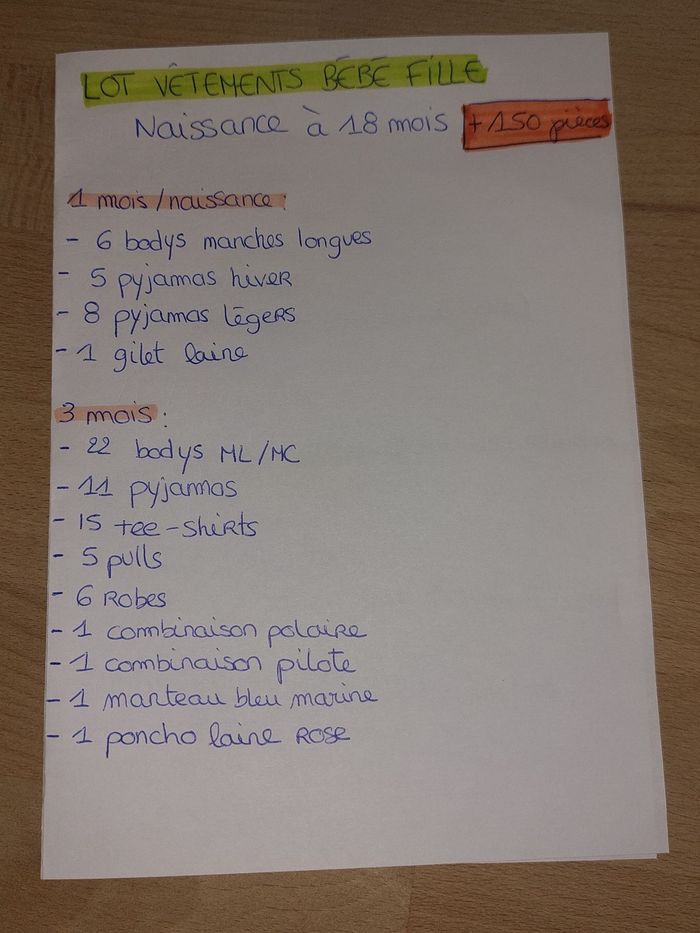 LOT VÊTEMENTS BÉBÉ FILLE
Naissance à 18 mois +150 pièces
1 mois/naissance:
- 6 bodys manches longues
- 5 pyjamas hiver
- 8 pyjamas légers
- 1 gilet laine
3 mois:
- 22 bodys ML/MC
- 11 pyjamas
- 15 tee-shirts
- 5 pulls
- 6 Robes
- 1 combinaison polaire
- 1 combinaison pilote
- 1 manteau bleu marine
- 1 poncho laine ROSE